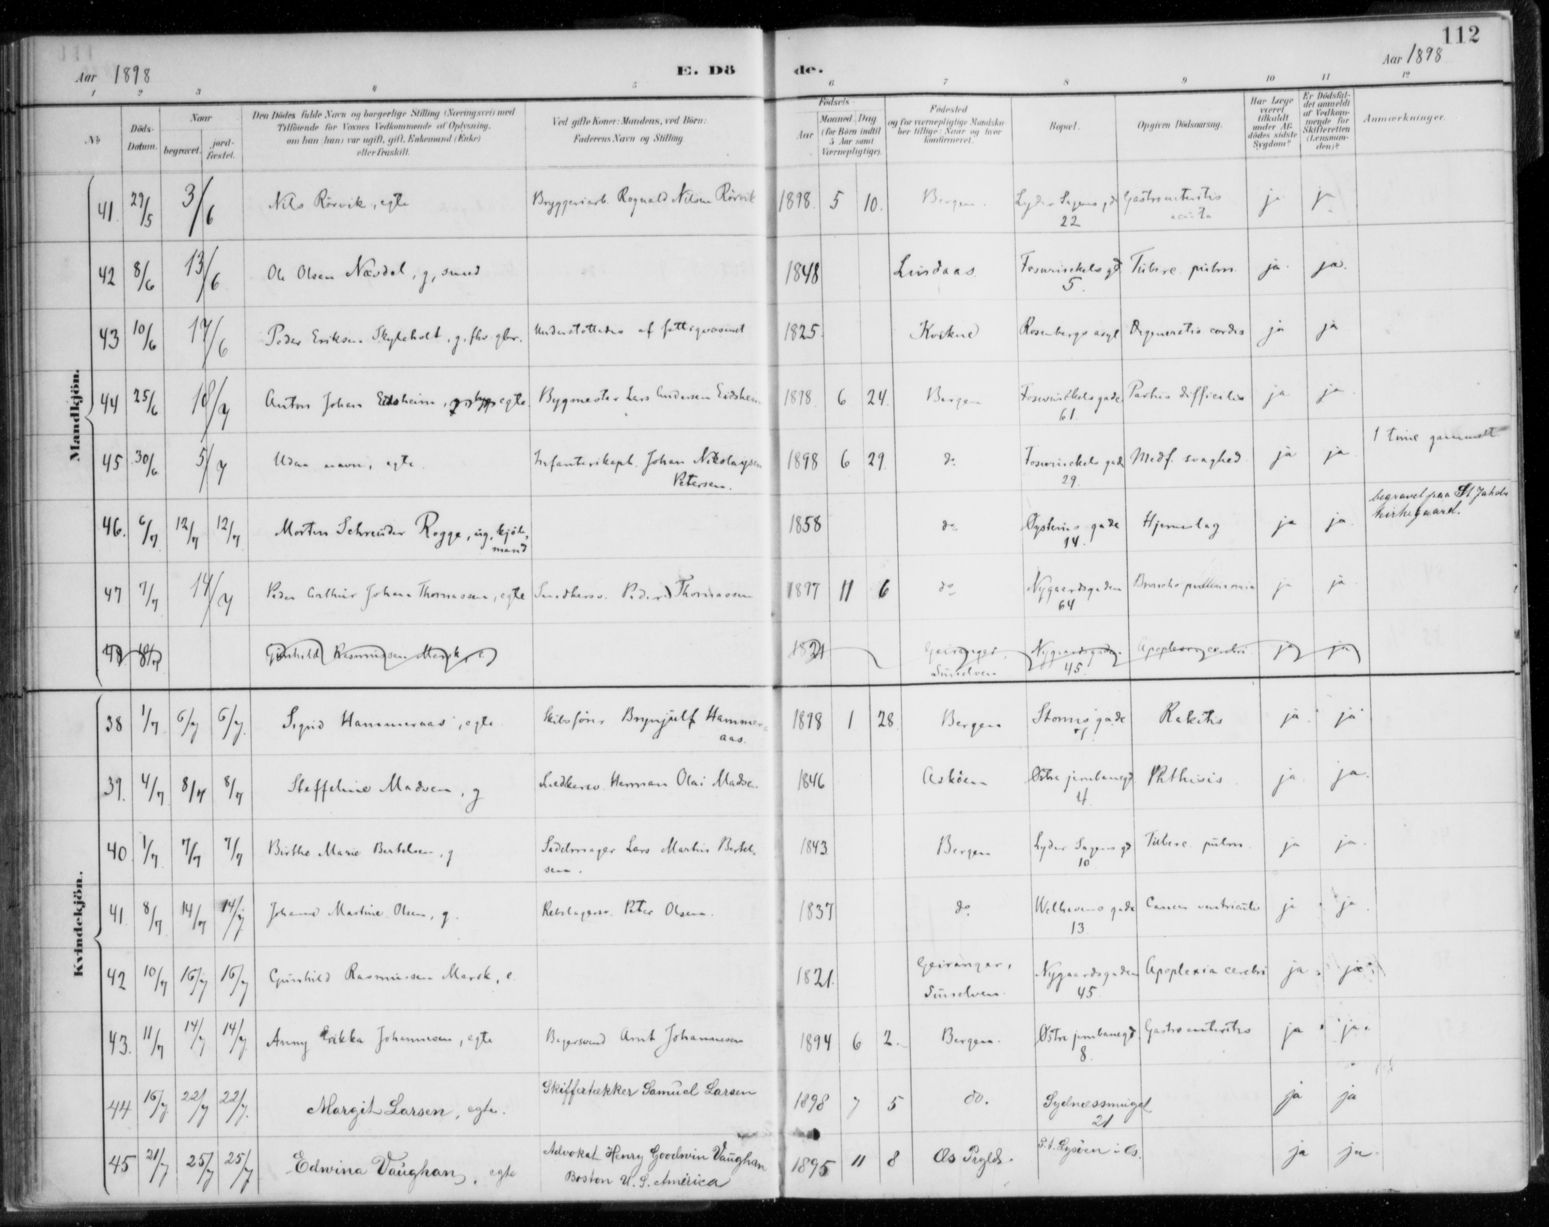 112
Aar 1898
E. Dö
de.
Aar 1898
1 2 3 4 5 6 7 8 9 10 11 12
No
Døds-Datum.
Naar
begravet.
jord-fæstet.
Den Dødes fulde Navn og borgerlige Stilling (Næringsvei) med
Tilföiende for Voxnes Vedkommende af Oplysning,
om han (hun) var ugift, gift, Enkemand (Enke)
eller fraskilt.
Ved gifte Koner: Mandens, ved Börn:
Faderens Navn og Stilling
Fødsels-
Aar
Maaned Dag
(for Børn indtil
5 Aar samt
Værnepligtige).
Födested
og for værnepligtige Mandskaber tillige: Naar og hvor
konfirmeret.
Bopæl.
Opgiven Dödsaarsag.
Har Læge
været
tilkaldt
under Afdödes sidste
Sygdom?
Er Dödsfaldet anmeldt
af Vedkommende for
Skifteretten
(Lensmanden)?
Anmærkninger.
Mandkjön.
41. 29/5 3/6 Nils Rörvik, egte Bryggeriarb. Rognald Nilsen Rörvik 1898. 5 10. Bergen. Lyder Sagens gd 22 Gastroenteritis acuta ja ja
42 8/6 13/6 Ole Olsen Nævdal, g, smed 1848 Lindaas Fosswinckels gd 5. Tuberc. pulm. ja. ja.
43 10/6 17/6 Peder Eriksen, g, fhv. gbr. Understöttedes af fattigvæsenet 1825. Rosenbergs asyl Degeneratio cordis ja ja
44 25/6 18/7 Anton Johan Eidsheim, egte. Bygmester Lars Andersen Eidsheim 1898. 6 24. Bergen Fosswinckels gade 61 Partus difficilis ja ja
45 30/6 5/7 Uden navn, egte. Infanterikapt. Johan Nikolaysen Petersen. 1898 6 29. do Fosswinckels gade 29. Medf. svaghed ja ja 1 time gammelt
46. 6/7 12/7 12/7 Morten Schreuder Rogge, ug, kjöbmand 1858 do Øysteins gade 14. Hjerneslag ja ja. begravet paa St Jakobs kirkegaard.
47 7/7 14/7 Peder Arthur Johan Thomassen, egte Snedkersv. Peder Thomassen 1897 11 6 do Nygaardsgaden 64 Broncho pneumonia ja ja
48 8/7 Gunhild Rasmussen Marok, e. 1821 Geiranger, Sunelven Nygaardsgaden 45. Apoplexia cerebri ja ja
Kvindekjön.
38 1/7 6/7 6/7. Sigrid Hammeraas, egte Skibsförer Brynjulf Hammeraas. 1898 1 28. Bergen Storms gade Rakitis ja. ja
39. 4/7 8/7 8/7 Steffeline Madsen, g Snedkersv. Herman Olai Madsen 1846 Asköen Østre jernbanegd 4. Phthisis ja. ja.
40 1/7. 7/7 7/7 Birthe Marie Bertelsen, g Sadelmager Lars Martin Bertelsen. 1843 Bergen Lyder Sagens gd 10 Tuberc. pulm. ja ja.
41. 8/7 14/7 14/7 Johanne Martine Olsen, g. Rebslagersv. Peter Olsen. 1837 do Welhavens gade 13 Cancer ventriculi ja ja.
42 10/7 16/7 16/7 Gunhild Rasmussen Marok, e. 1821. Geiranger, Sunelven. Nygaardsgaden 45 Apoplexia cerebri ja. ja
43. 11/7 14/7 14/7 Anny Johannesen, egte Bagersvend Arnt Johannesen 1894 6 2. Bergen. Østre jernbanegd. 8. Gastroenteritis ja ja.
44 16/7 22/7 22/7. Margit Larsen, egte. Skiffertækker Samuel Larsen 1898 7 5 do. Sydnessmuget 21 ja ja
45 21/7 25/7 25/7 Edwina Vaughan, egte Advokat Henry Goodwin Vaughan Boston U. S. America 1895 11 8 Lysöen i Os. ja ja.